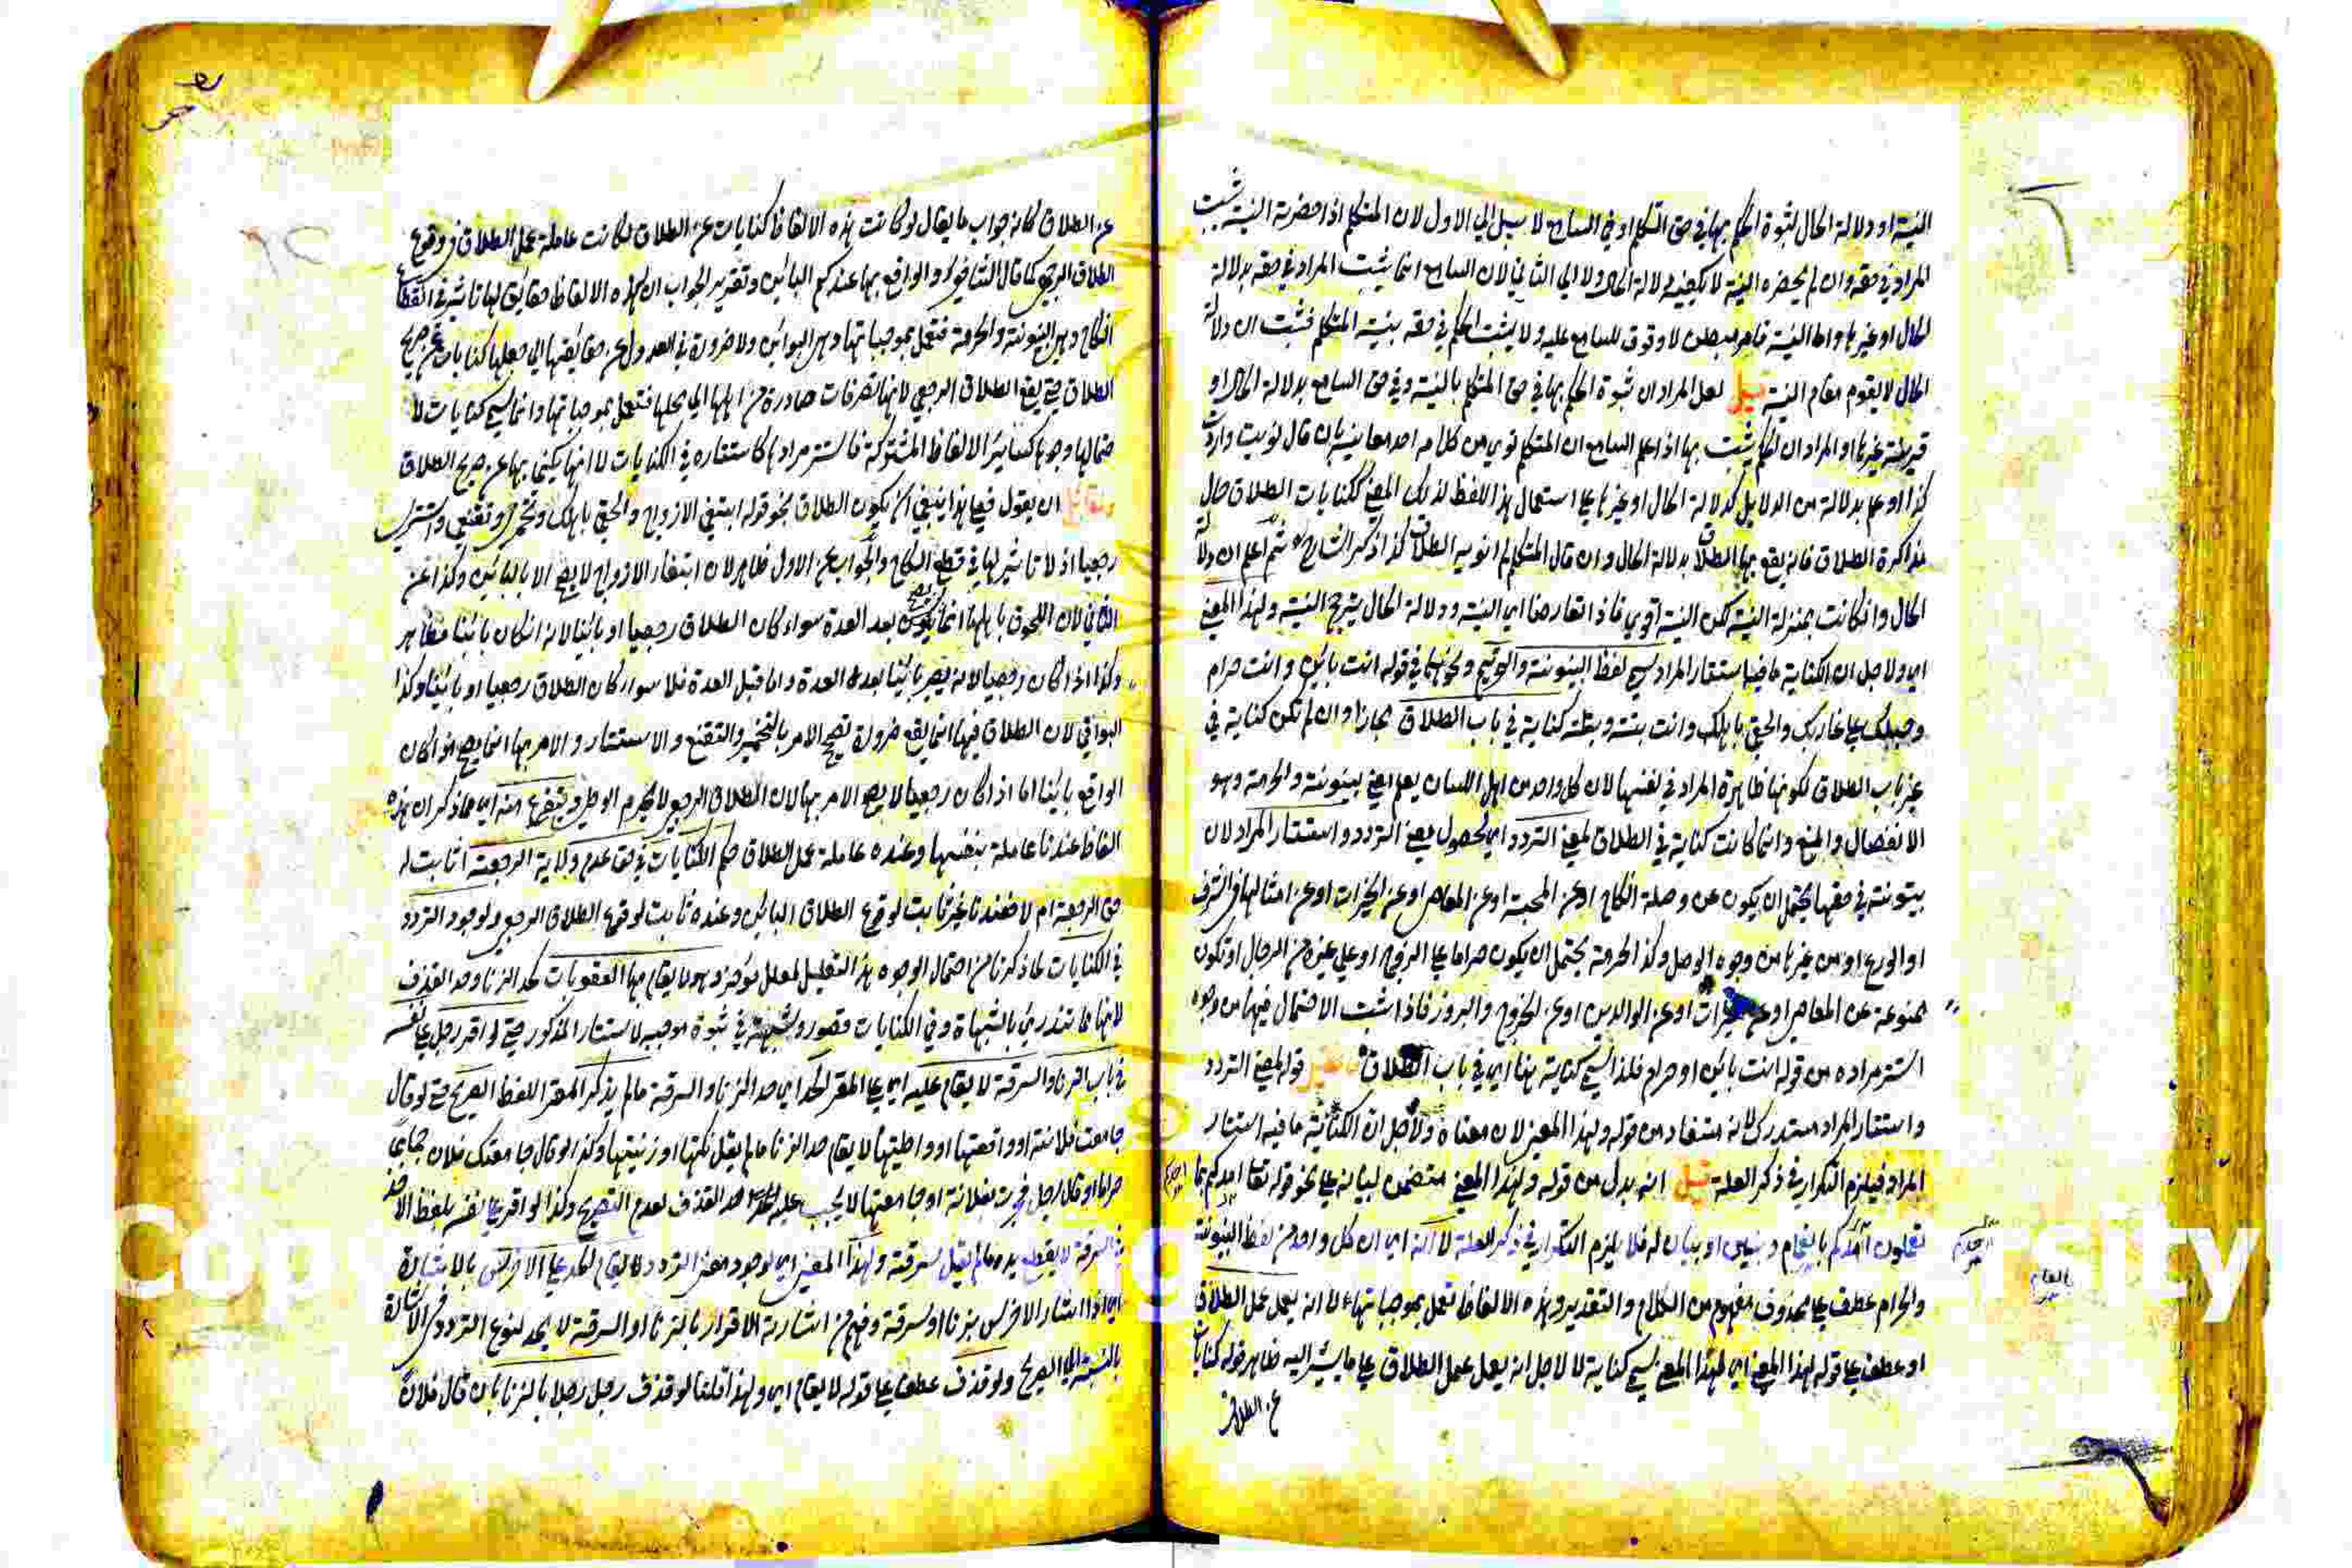 النية او دلالة الحال لثبوة الحكم بها في حق المتكلم او في السامع لا سبيل الي الاول لان المتكلم اذا حضرته النية يثبت
المراد في حقه وان لم يحضره النية لا يكفيه دلالة الحال ولا الي الثاني لان السامع انما يثبت المراد في حقه بدلالة
الحال او غيرها واما النية فامر مبطن لا وقوف للسامع عليه ولا يثبت الحكم في حقه بنية المتكلم فثبت ان دلالة
الحال لا يقوم مقام النية قيل لعل المراد ان ثبوة الحكم بها في حق المتكلم بالنية وفي حق السامع بدلالة الحال او
قرينة غيرها او المراد ان الحكم يثبت بها اذا علم السامع ان المتكلم نوي من كلامه احد معانيه بان قال نويت واردت
كذا او علم بدلالة من الدلايل كدلالة الحال او غيرها علي استعمال هذا اللفظ لذلك المعني ككنايات الطلاق حال
مذاكرة الطلاق فانه يقع بها الطلاق بدلالة الحال وان قال المتكلم لم انو به الطلاق كذا ذكر الشارح ثم اعلم ان دلالة
الحال وان كانت بمنزلة النية لكن النية اقوي فاذا تعارضا اي النية ودلالة الحال يترجح النية ولهذا المعني
اي ولاجل ان الكناية ما فيها استتار المراد سمي لفظ البينونة والتحريم ونحوهما في قوله انت بائن وانت حرام
وحبلك علي غاربك والحقي باهلك وانت بتة وبتلة كناية في باب الطلاق مجازا وان لم تكن كناية في
غير باب الطلاق لكونها ظاهرة المراد في نفسها لان كل واحد من اهل اللسان يعلم معني بينونة والحرمة وهو
الانفصال والمنع وانما كانت كناية في الطلاق لمعني التردد اي لحصول معني التردد واستتار المراد لان
بينونة في حقها يحتمل ان يكون عن وصلة النكاح او عن المحبة او عن المعاصي او عن الخيرات او عن امثالها في الشرف
او الورع او من غيرها من وجوه الوصل وكذا الحرمة يحتمل ان يكون حراما علي الزوج او علي غيره من الرجال او تكون
ممنوعة عن المعاصي او عن الخيرات او عن الوالدين او عن الخروج والبروز فاذا ثبت الاحتمال فيها من وجوه
استتر مراده من قوله انت بائن او حرام فلذا سمي كناية هنا اي في باب الطلاق فان قيل قوله لمعني التردد
واستتار المراد مستدرك لانه مستفاد من قوله ولهذا المعني لان معناه ولاجل ان الكناية ما فيه استتار
المراد فيلزم التكرار في ذكر العلة قيل انه بدل من قوله ولهذا المعني متضمن لبيانه علي نحو قوله تعا امدكم بما
تعلمون امدكم بانعام وبنين او بيان له فلا يلزم التكرار في ذكر العلة لا انه اي ان كل واحد من لفظ البينونة
والحرام عطف علي محذوف مفهوم من الكلام والتقدير وهذه الالفاظ تعمل بموجباتها لا انه يعمل عمل الطلاق
او عطف علي قوله لهذا المعني اي لهذا المعني سمي كناية لا لاجل انه يعمل عمل الطلاق علي ما يشير اليه ظاهر قوله كنايات
عن الطلاق
عن الطلاق كانه جواب ما يقال لو كانت هذه الالفاظ كنايات عن الطلاق لكانت عاملة عمل الطلاق في وقوع
الطلاق الرجعي كما قال الشافعي والواقع بها عندكم البائن وتقرير الجواب ان لهذه الالفاظ حقايق لها تاثير في انقطاع
النكاح وهي البينونة والحرمة فتعمل بموجباتها وهي البوائن ولا ضرورة في العدول عن حقايقها الي جعلها كنايات عن صريح
الطلاق حتي يقع الطلاق الرجعي لانها تصرفات صادرة من اهلها الي محلها فتعمل بموجباتها وانما سمي كنايات لا
حتمالها وجوها كسائر الالفاظ المشتركة فاستتر مرادها كاستتاره في الكنايات لا انها يكني بها عن صريح الطلاق
ولقائل ان يقول فعلي هذا ينبغي ان يكون الطلاق بنحو قوله ابتغي الازواج والحقي باهلك وتخمري وتقنعي واستتري
رجعيا اذ لا تاثير لها في قطع النكاح والجواب عن الاول ظاهر لان ابتغاء الازواج لا يصح الا بالبائن وكذا عن
الثاني لان اللحوق باهلها انما يكون بعد العدة سواء كان الطلاق رجعيا او بائنا لانه ان كان بائنا فظاهر
وكذا اذا كان رجعيا لانه يصير بائنا بعد العدة واما قبل العدة فلا سواء كان الطلاق رجعيا او بائنا وكذا
البواقي لان الطلاق فيها انما يقع ضرورة تصحيح الامر بالتخمير والتقنع والاستتار والامر بها انما يصح لو كان
الواقع بائنا اما اذا كان رجعيا لا يصح الامر بها لان الطلاق الرجعي لا يحرم الوطي ويتفرع منه اي مما ذكر ان هذه
الفاظ عندنا عاملة بنفسها وعنده عاملة عمل الطلاق حكم الكنايات في حق عدم ولاية الرجعة اثابت له
حق الرجعة ام لا فعندنا غير ثابت لوقوع الطلاق البائن وعنده ثابت لوقوع الطلاق الرجعي ولوجود التردد
في الكنايات لما ذكرنا من احتمال الوجوه هذا التعليل لمعلل مؤخر وهو لا يقام بها العقوبات كحد الزنا وحد القذف
لانها مما تندرئ بالشبهاة وفي الكنايات قصور وشبهة في ثبوة موجبه لاستتار المذكور حتي لو اقر رجل علي نفسه
في باب الزنا والسرقة لا يقام عليه اي علي المقر الحد اي حد الزنا والسرقة ما لم يذكر المقر اللفظ الصريح حتي لو قال
جامعت فلانة او واقعتها او واطيتها لا يقام حد الزنا ما لم يقل نكتها او زنيتها وكذا لو قال جامعتك فلان جماعا
حراما او قال لرجل فجرت بفلانة او جامعتها لا يجب عليه حد القذف لعدم التصريح وكذا لو اقر علي نفسه بلفظ الاخذ
في السرقة لا يقطع يده ما لم يقل سرقت ولهذا المعني اي لوجود معني التردد لا يقام الحد علي الاخرس بالاشارة
اي اذا اشار الاخرس بزنا او سرقة وفهم من اشارته الاقرار بالزنا او السرقة لا يحد لنوع التردد في الاشارة
بالنسبة الي الصريح ولو قذف عطف علي قوله لا يقام اي ولهذا قلنا لو قذف رجل رجلا بالزنا بان قال فلان